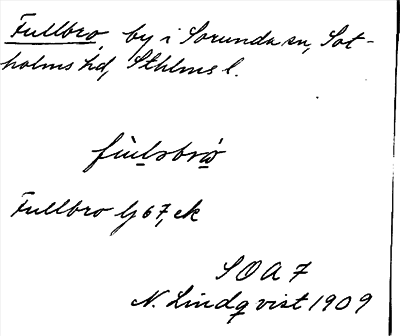 Fullbro, by i Sorunda sn, Sot-
holms hd, Sthlms l.
fùlsbrò
Fullbro lj 67, ek
SOA 7
N. Lindqvist 1909